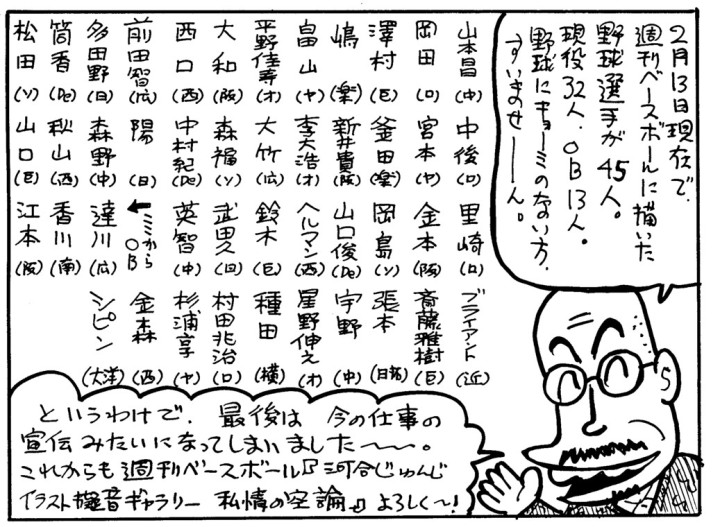 2月13日現在で、
週刊ベースボールに描いた
野球選手が45人。
現役32人、OB13人。
野球にキョーミのない方、
すいませーん。
山本昌(中) 中後(ロ) 里崎(ロ) ブライアント(近)
岡田(ロ) 宮本(ヤ) 金本(阪) 斎藤雅樹(巨)
澤村(巨) 釜田(楽) 岡島(ソ) 張本(日拓)
嶋(楽) 新井貴(阪) 山口俊(De) 宇野(中)
畠山(ヤ) 李大浩(オ) ヘルマン(西) 星野伸之(オ)
平野佳寿(オ) 大竹(広) 鈴木(巨) 種田(横)
大和(阪) 森福(ソ) 武田久(日) 村田兆治(ロ)
西口(西) 中村紀(De) 英智(中) 杉浦享(ヤ)
前田智(広) 陽(日) ←ここからOB 金森(西)
多田野(日) 森野(中) 達川(広) シピン(大洋)
筒香(De) 秋山(西) 香川(南)
松田(ソ) 山口(巨) 江本(阪)
というわけで、最後は今の仕事の
宣伝みたいになってしまいました〜〜。
これからも週刊ベースボール『河合じゅんじ
イラスト擬音ギャラリー 私情の空論』よろしく〜!